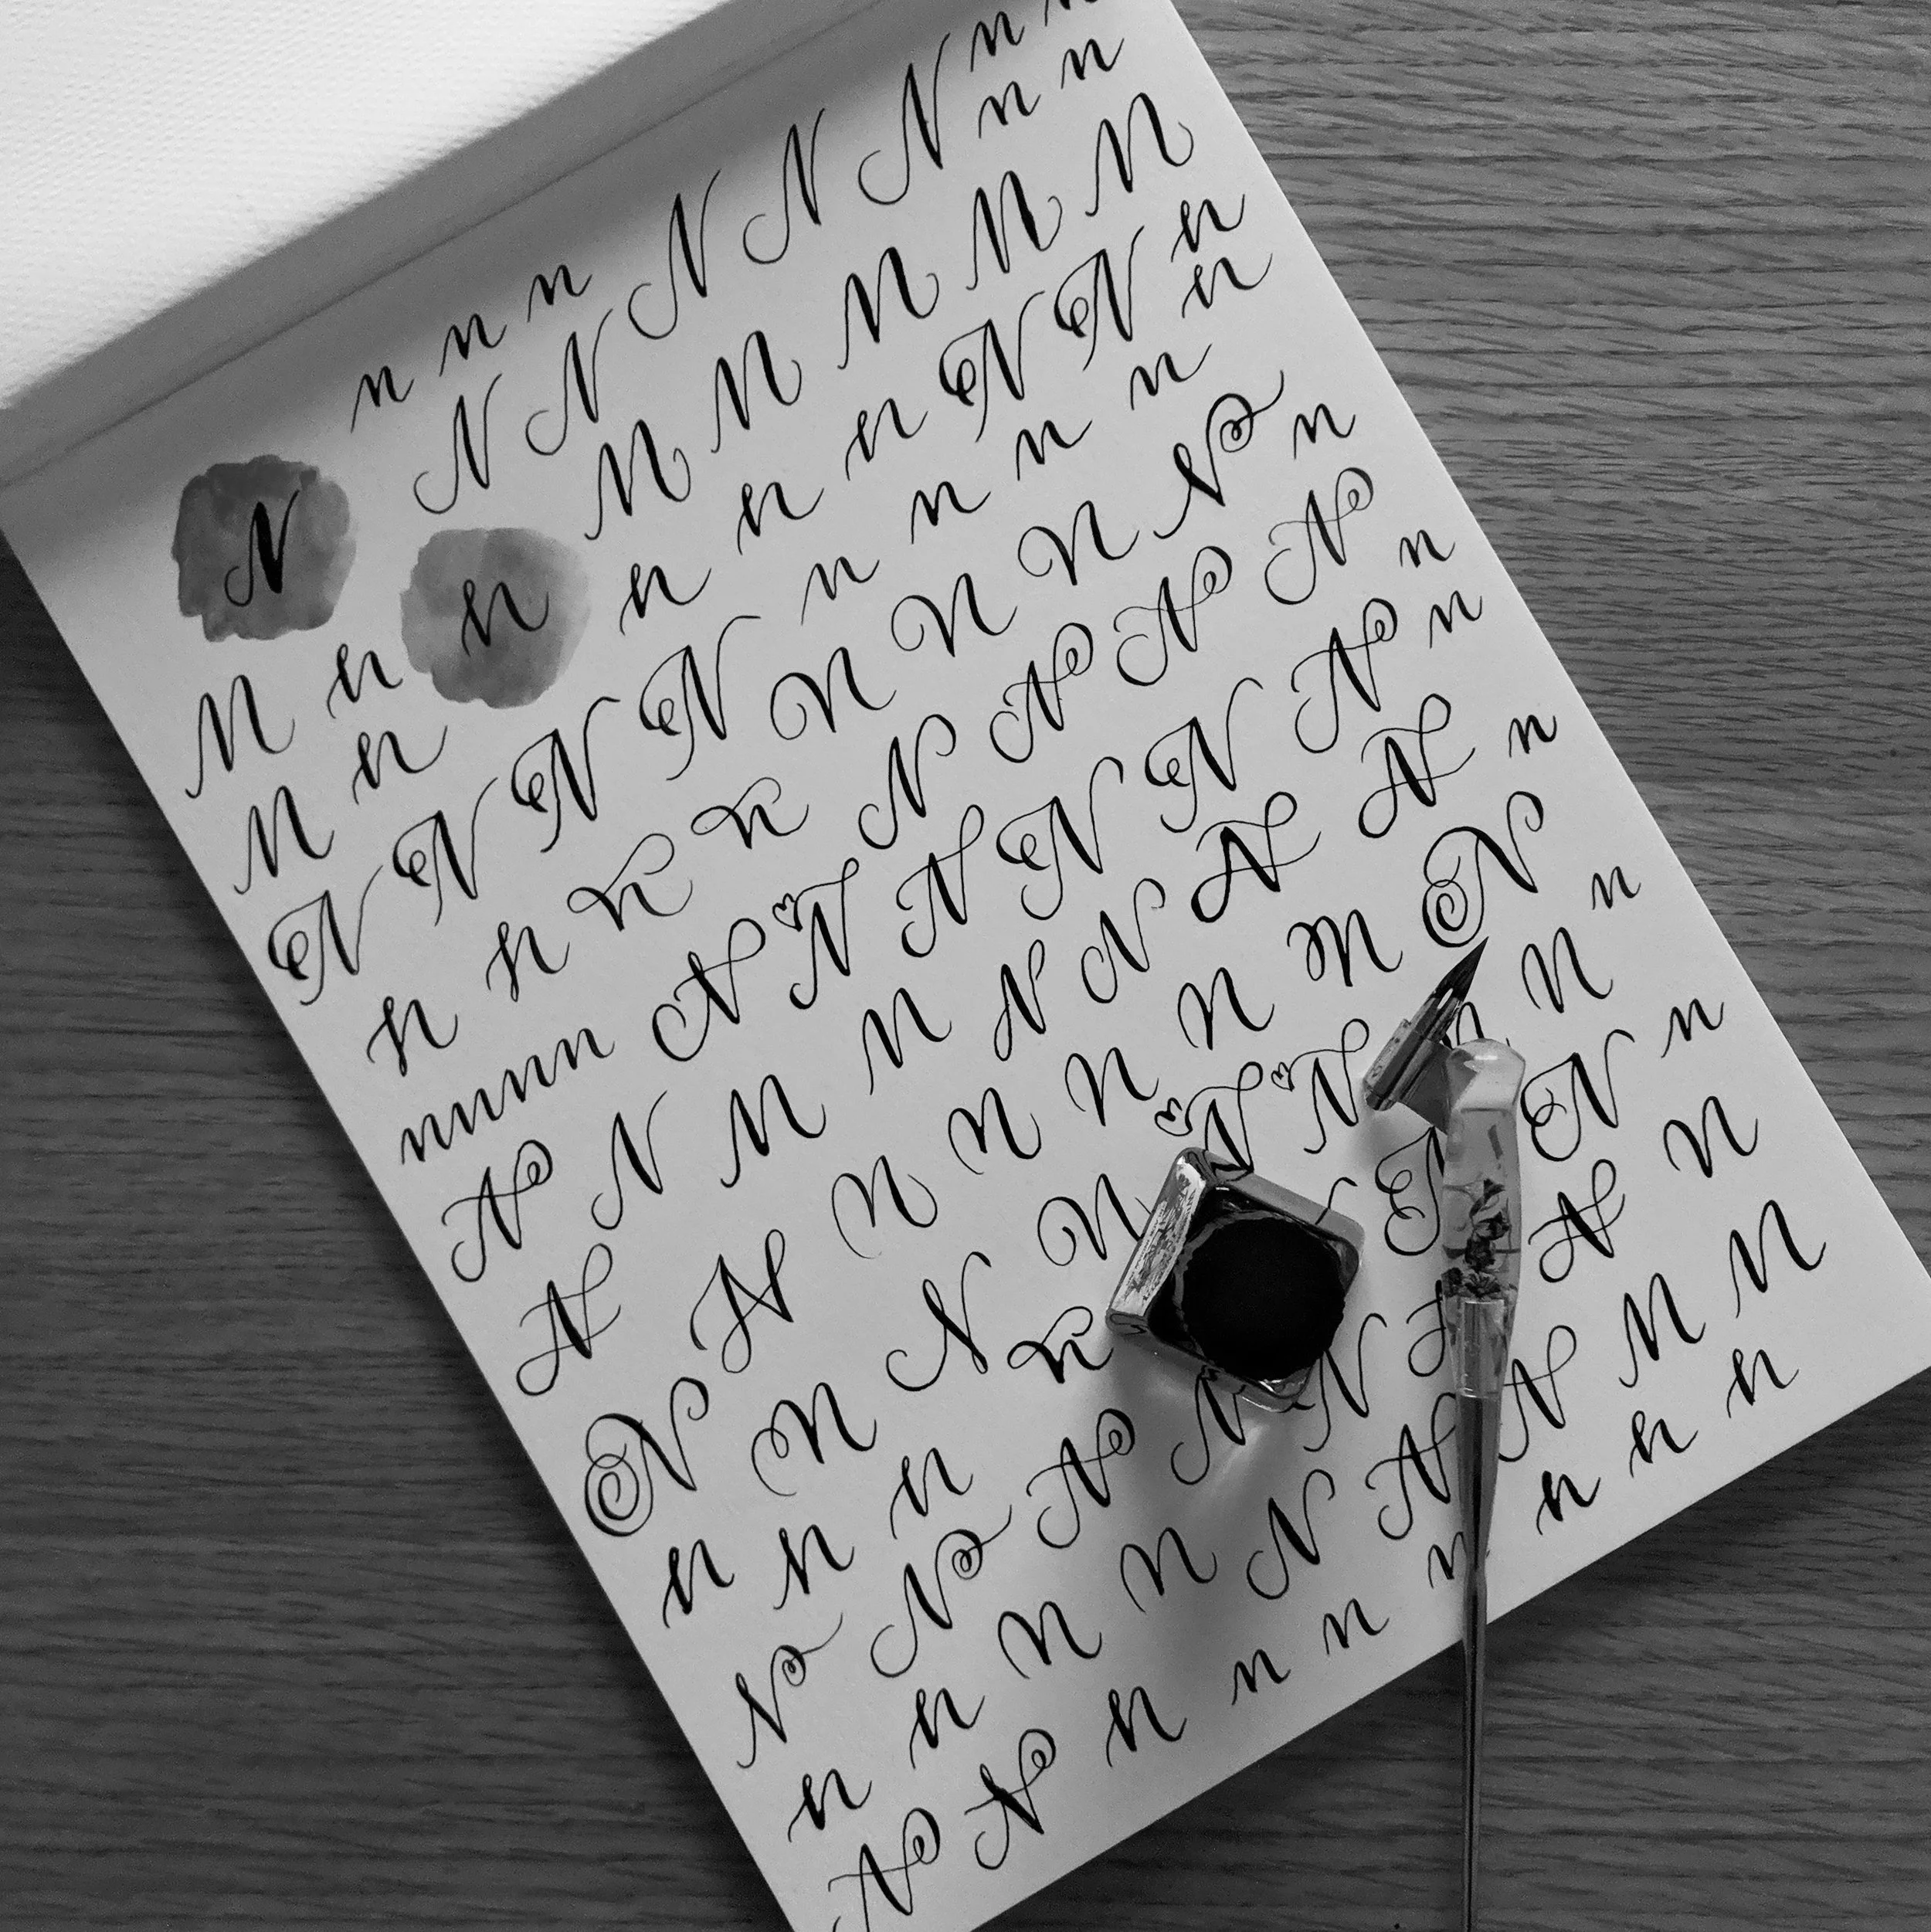 n n n n n
N N N N N n n
N N N N N N
n n n n n N N n
N n n
N N N N N n n n n
n n n n N N N N n
nnnnn N N N N n
N N N N N n
N N N N N N N N n
N N N N N N N N n
N N N N N N N n
n n n n N N
N N N N N N N
n n N N N N N N N
N N n n n n n n n